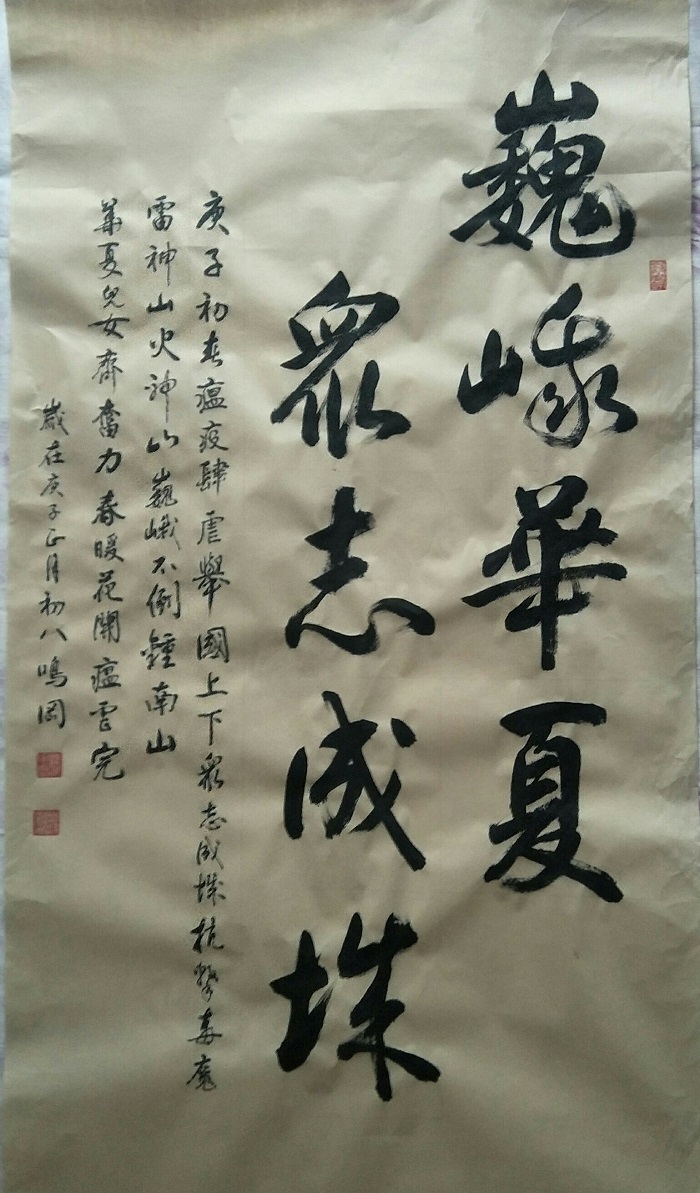 巍峨華夏
眾志成城
庚子初春瘟疫肆虐舉國上下眾志成城抗擊毒魔
雷神山火神山巍峨不倒鍾南山
華夏兒女齊奮力春暖花開瘟雲完
歲在庚子正月初八鳴岡